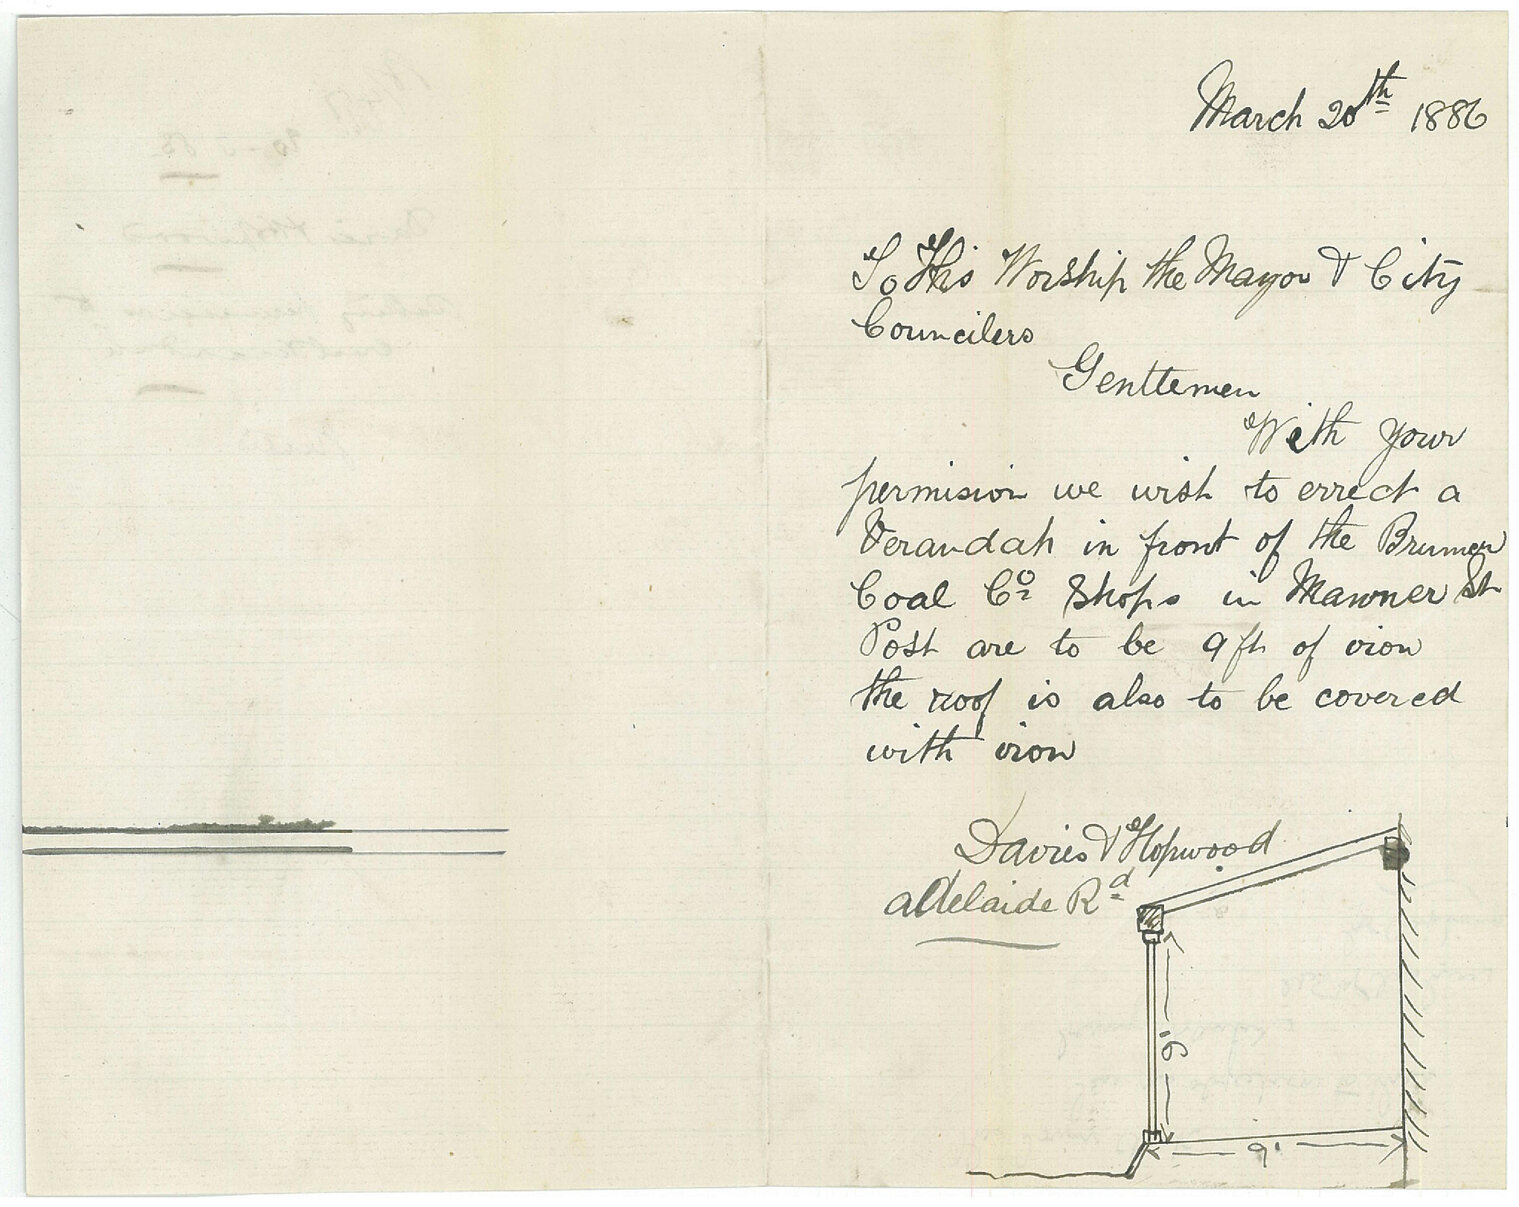 March 20th 1886
To His Worship the Mayor & City
Councilers
Gentlemen
With your
permision we wish to errect a
Verandah in front of the Brunner
Coal Co Shops in Manner St
Post are to be 9ft of iron
the roof is also to be covered
with iron
Davies & Hopwood
adelaide Rd
9'
9'